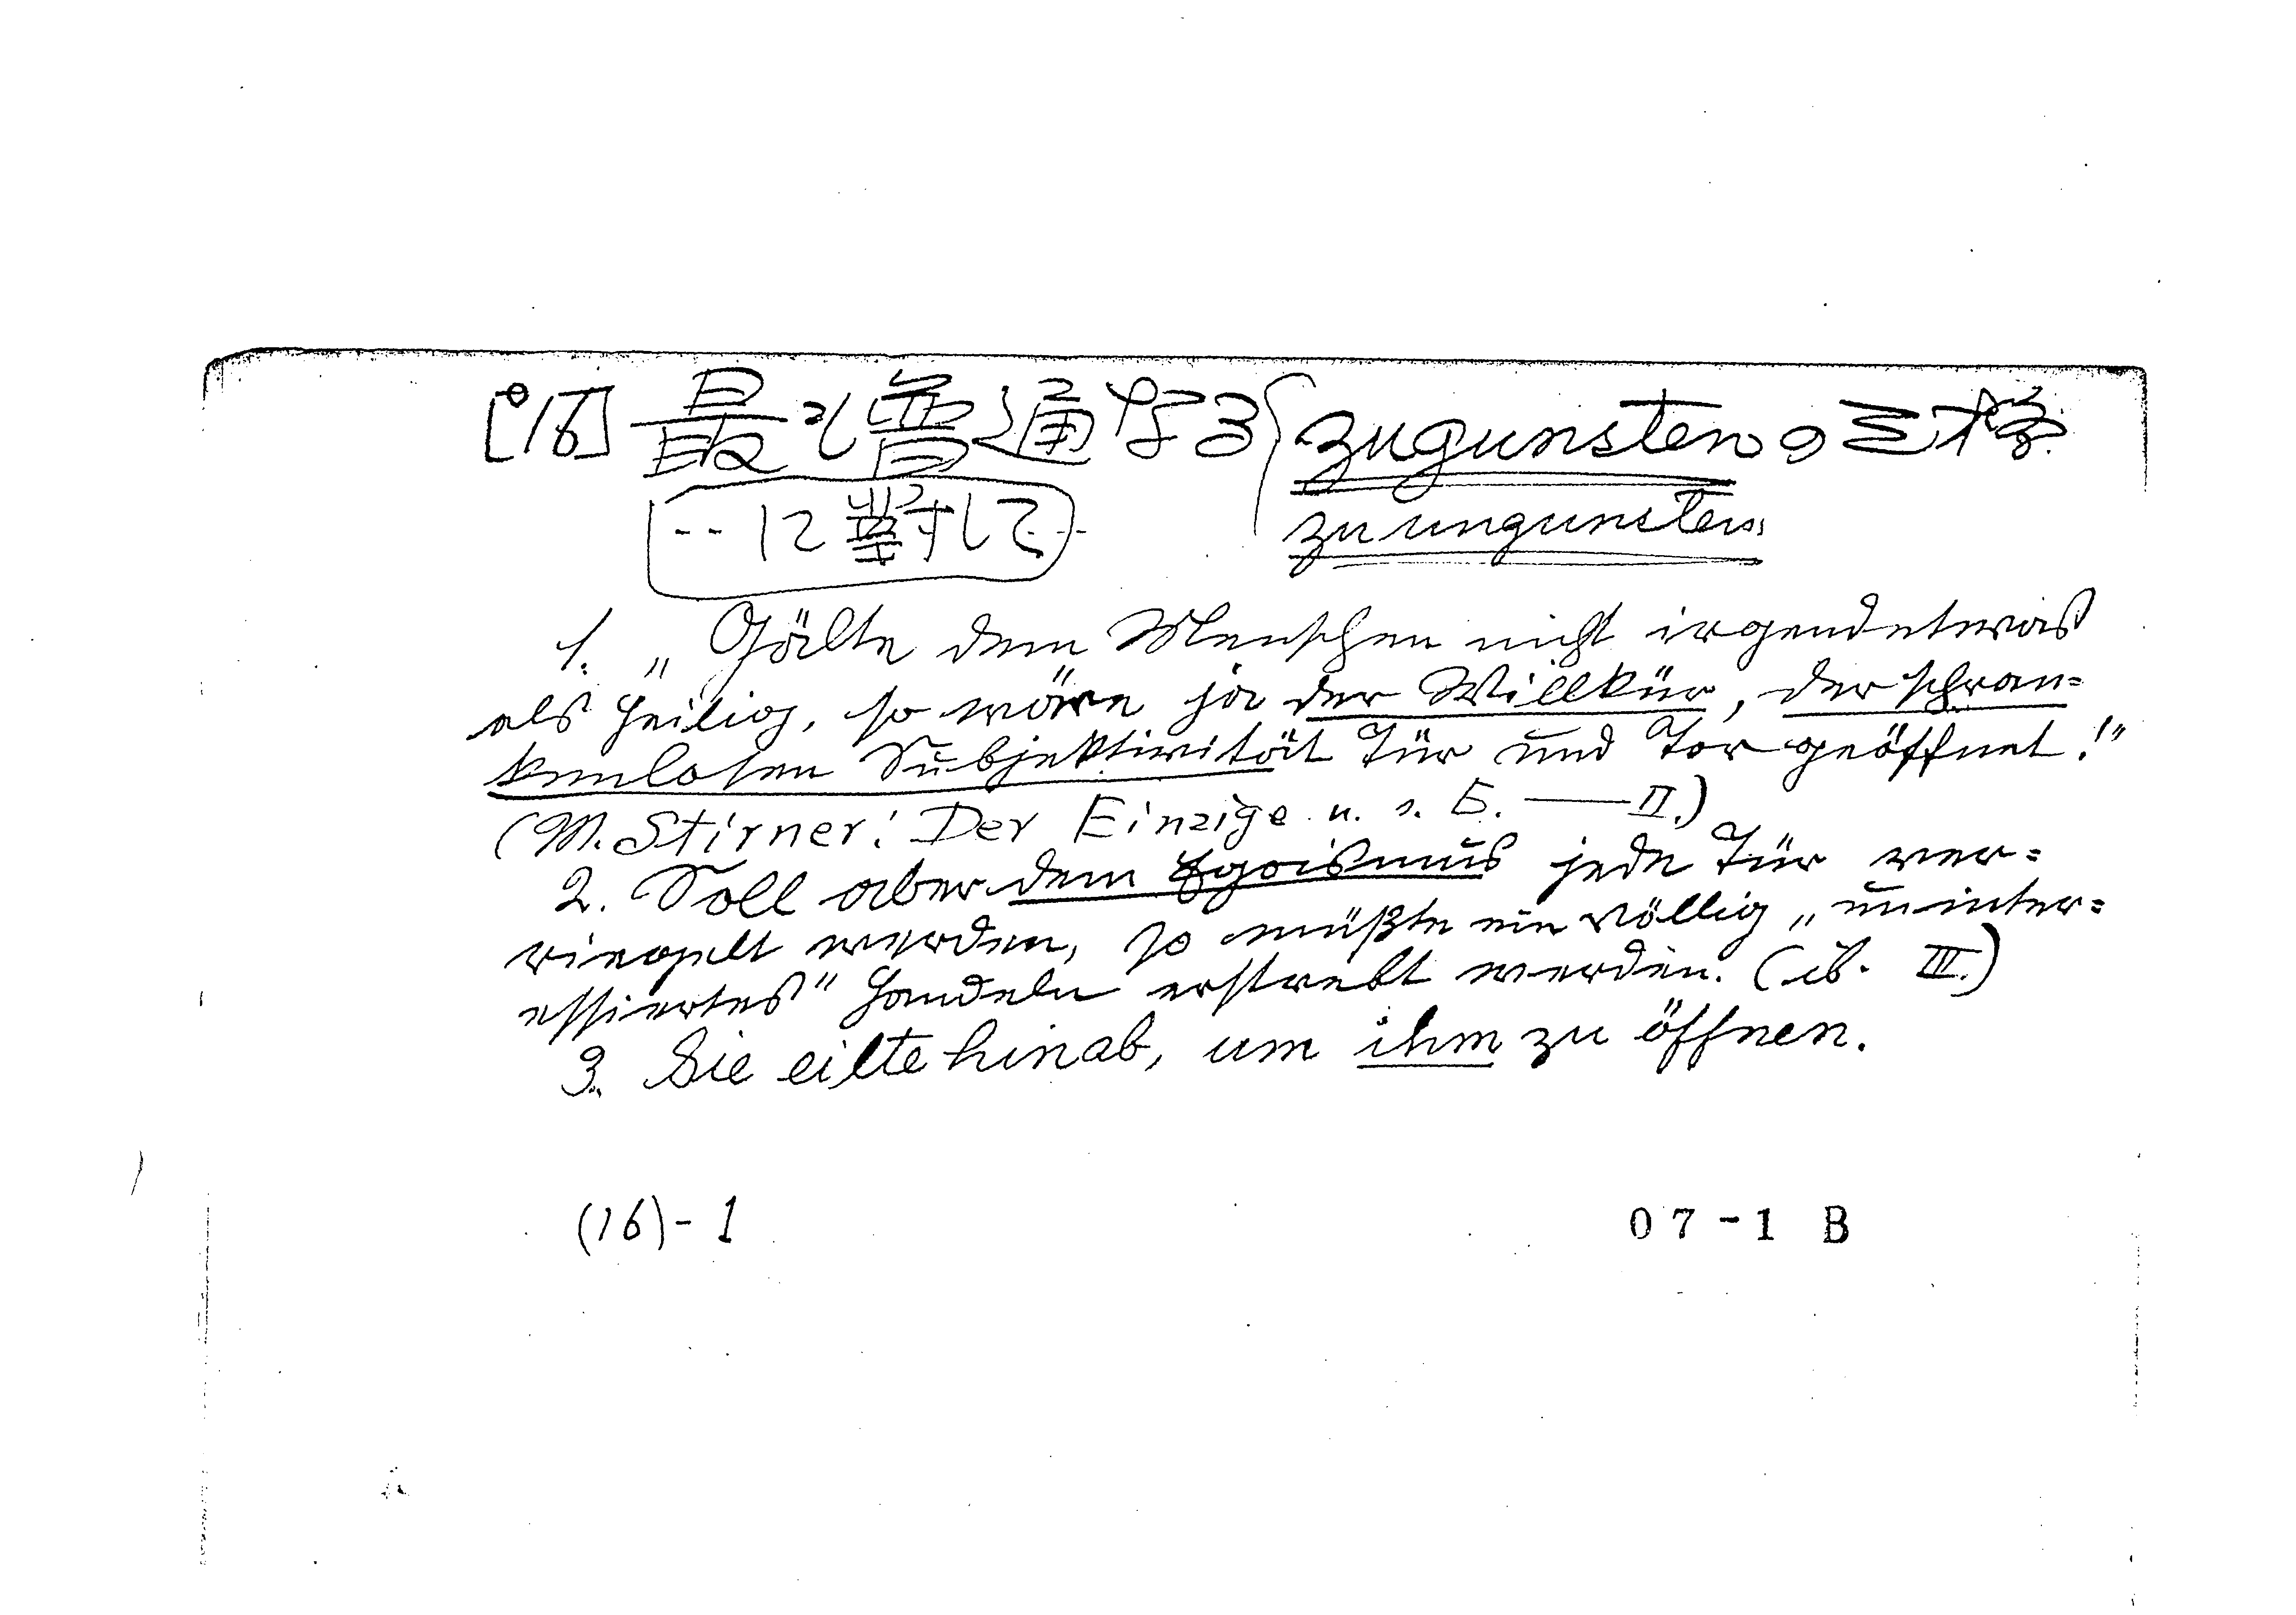 [°16] 最も普通なる { zugunsten の三格
zuungunsten
‥に對して‥
1. „Gälte dem Menschen nicht irgendetwas
als heilig, so wäre ja der Willkür, der schran=
kenlosen Subjektivität Tür und Tor geöffnet!“
(M. Stirner: Der Einzige u. s. E. — II.)
2. Soll aber dem Egoismus jede Tür ver=
riegelt werden, so müßte ein völlig „uninter=
essiertes“ Handeln erstrebt werden. (ib. III.)
3. Sie eilte hinab, um ihm zu öffnen.
(16)-1
07-1 B